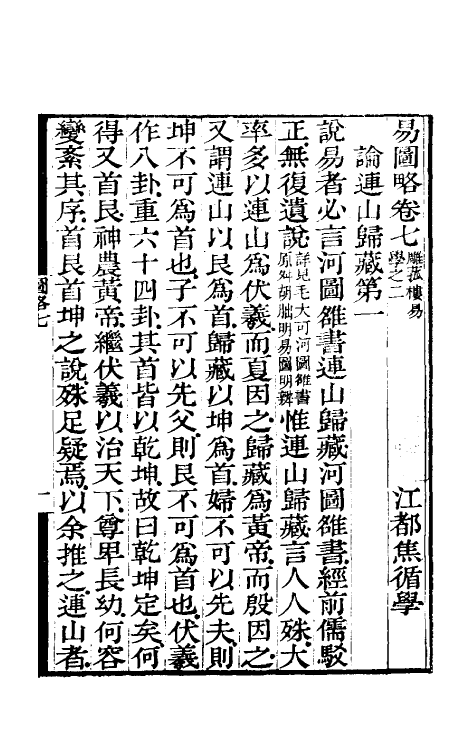 易圖略卷七
雕菰樓易
學之二
江都焦循學
論連山歸藏第一
說易者必言河圖雒書連山歸藏河圖雒書經前儒駁
正無復遺說
詳見毛大可河圖雒書
原舛胡朏明易圖明辨
惟連山歸藏言人人殊大
率多以連山爲伏羲而夏因之歸藏爲黃帝而殷因之
又謂連山以艮爲首歸藏以坤爲首婦不可以先夫則
坤不可爲首也子不可以先父則艮不可爲首也伏羲
作八卦重六十四卦其首皆以乾坤故曰乾坤定矣何
得又首艮神農黃帝繼伏羲以治天下尊卑長幼何容
變紊其序首艮首坤之說殊足疑焉以余推之連山者
圖略七
一